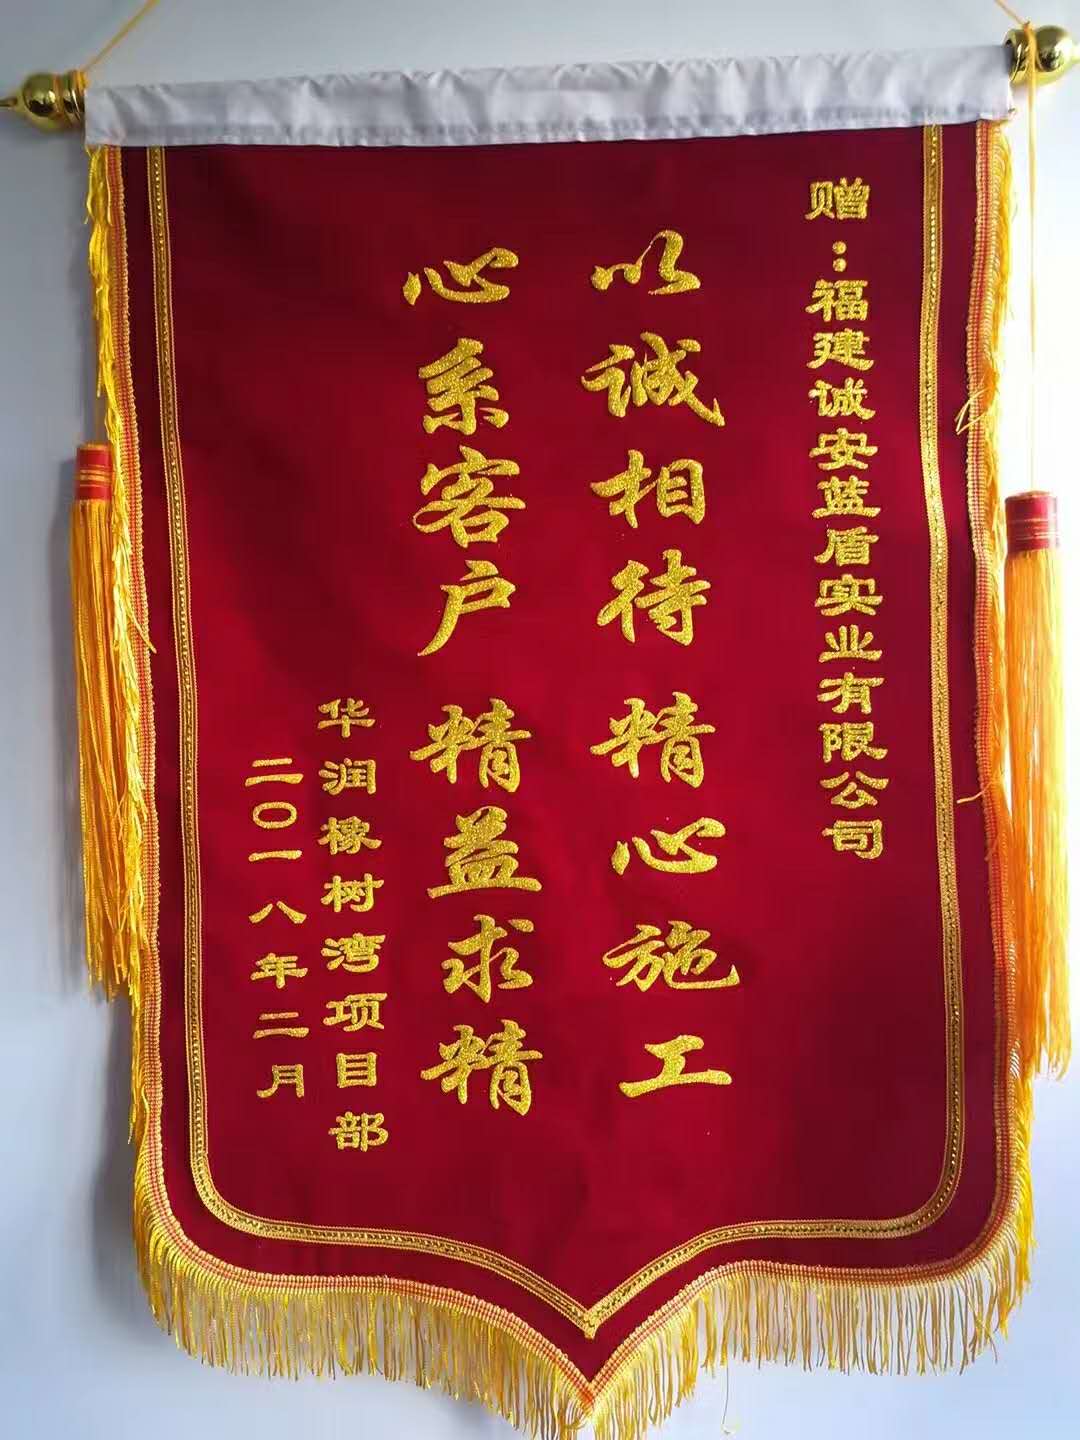 赠：福建诚安蓝盾实业有限公司
以诚相待 精心施工
心系客户 精益求精
华润橡树湾项目部
二〇一八年二月